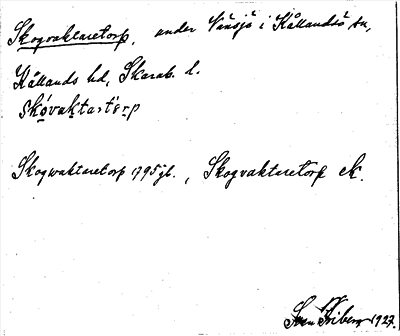 Skogvaktaretorp, under Nänsjö i Kållandsö sn,
Kållands hd, Skarab. l.
skóvaktastòrp
Skogwaktaretorp 1795 jb., Skogvaktaretorp ek.
Sven Friberg 1927.